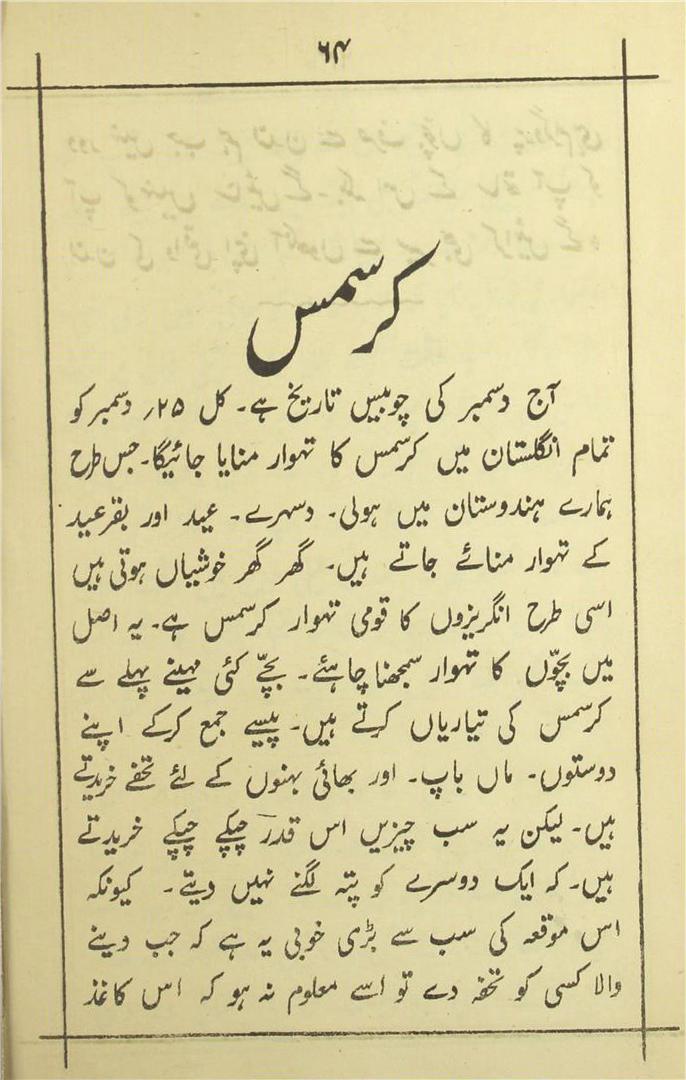 ۶۴
کرسمس
آج دسمبر کی چوبیس تاریخ ہے۔ کل ۲۵؍ دسمبر کو
تمام انگلستان میں کرسمس کا تہوار منایا جائیگا۔ جس طرح
ہمارے ہندوستان میں ہولی۔ دسہرے۔ عید اور بقرعید
کے تہوار منائے جاتے ہیں۔ گھر گھر خوشیاں ہوتی ہیں
اسی طرح انگریزوں کا قومی تہوار کرسمس ہے۔ یہ اصل
میں بچّوں کا تہوار سمجھنا چاہئے۔ بچّے کئی مہینے پہلے سے
کرسمس کی تیاریاں کرتے ہیں۔ پیسے جمع کرکے اپنے
دوستوں۔ ماں باپ۔ اور بھائی بہنوں کے لئے تحفے خریدتے
ہیں۔ لیکن یہ سب چیزیں اس قدر چپکے چپکے خریدتے
ہیں۔ کہ ایک دوسرے کو پتہ لگنے نہیں دیتے۔ کیونکہ
اس موقعہ کی سب سے بڑی خوبی یہ ہے کہ جب دینے
والا کسی کو تحفہ دے تو اسے معلوم نہ ہو کہ اس کاغذ